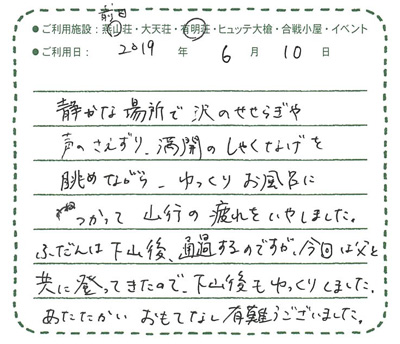 前日
●ご利用施設：燕山荘・大天荘・有明荘・ヒュッテ大槍・合戦小屋・イベント
●ご利用日： 2019 年 6 月 10 日
静かな場所で 沢のせせらぎや
声のさえずり、満開のしゃくなげを
眺めながら、ゆっくり お風呂に
つかって 山行の 疲れを いやしました。
ふだんは 下山後、通過するのですが、今回は父と
共に 登ってきたので、下山後も ゆっくりしました。
あたたかい おもてなし 有難うございました。